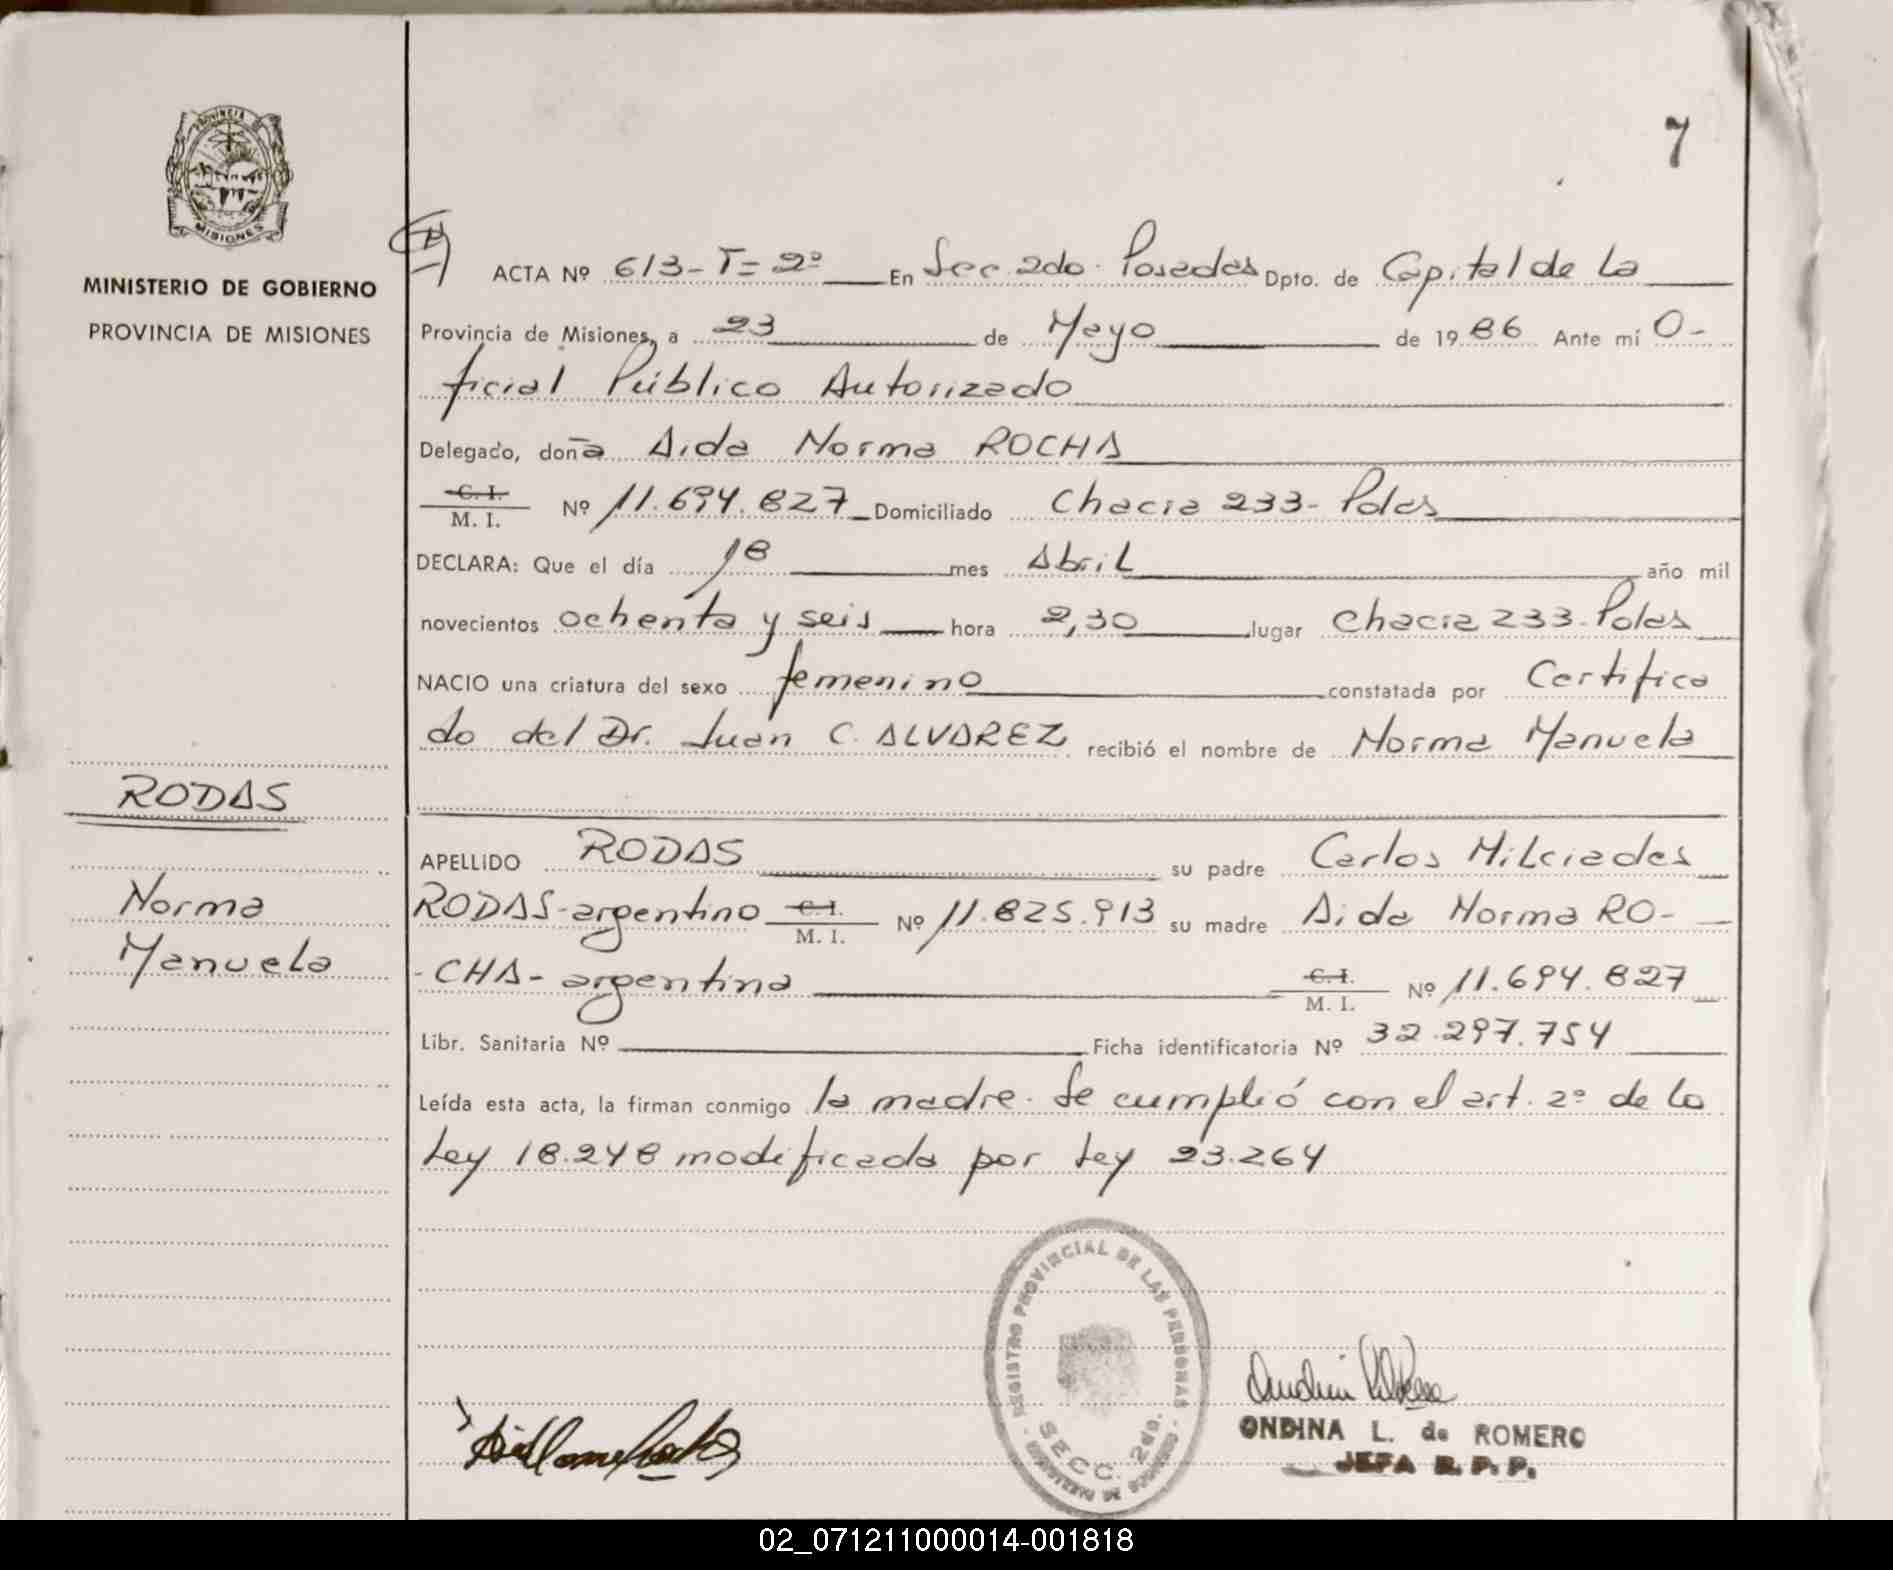 7
PROVINCIA DE
MISIONES
MINISTERIO DE GOBIERNO
PROVINCIA DE MISIONES
ACTA Nº 613-T=2º En Secc. 2da. Posadas Dpto. de Capital de la
Provincia de Misiones, a 23 de Mayo de 1986 Ante mí O-
ficial Público Autorizado
Delegado, doña Aida Norma ROCHA
C. I.
M. I. Nº 11.694.827 Domiciliado Chacra 233- Pdas
DECLARA: Que el día 18 mes Abril año mil
novecientos ochenta y seis hora 2,30 lugar Chacra 233-Pdas
NACIO una criatura del sexo femenino constatada por Certifica
do del Dr. Juan C. ALVAREZ recibió el nombre de Norma Manuela
RODAS
Norma
Manuela
APELLIDO RODAS su padre Carlos Milciades
RODAS-argentino C. I.
M. I. Nº 11.825.913 su madre Aida Norma RO-
-CHA- argentina C. I.
M. I. Nº 11.694.827
Libr. Sanitaria Nº Ficha identificatoria Nº 32.297.754
Leída esta acta, la firman conmigo la madre. Se cumplió con el art. 2º de la
Ley 18.248 modificada por Ley 23.264
REGISTRO PROVINCIAL DE LAS PERSONAS
SECC. 2da.
ONDINA L. de ROMERO
JEFA R. P. P.
02_071211000014-001818